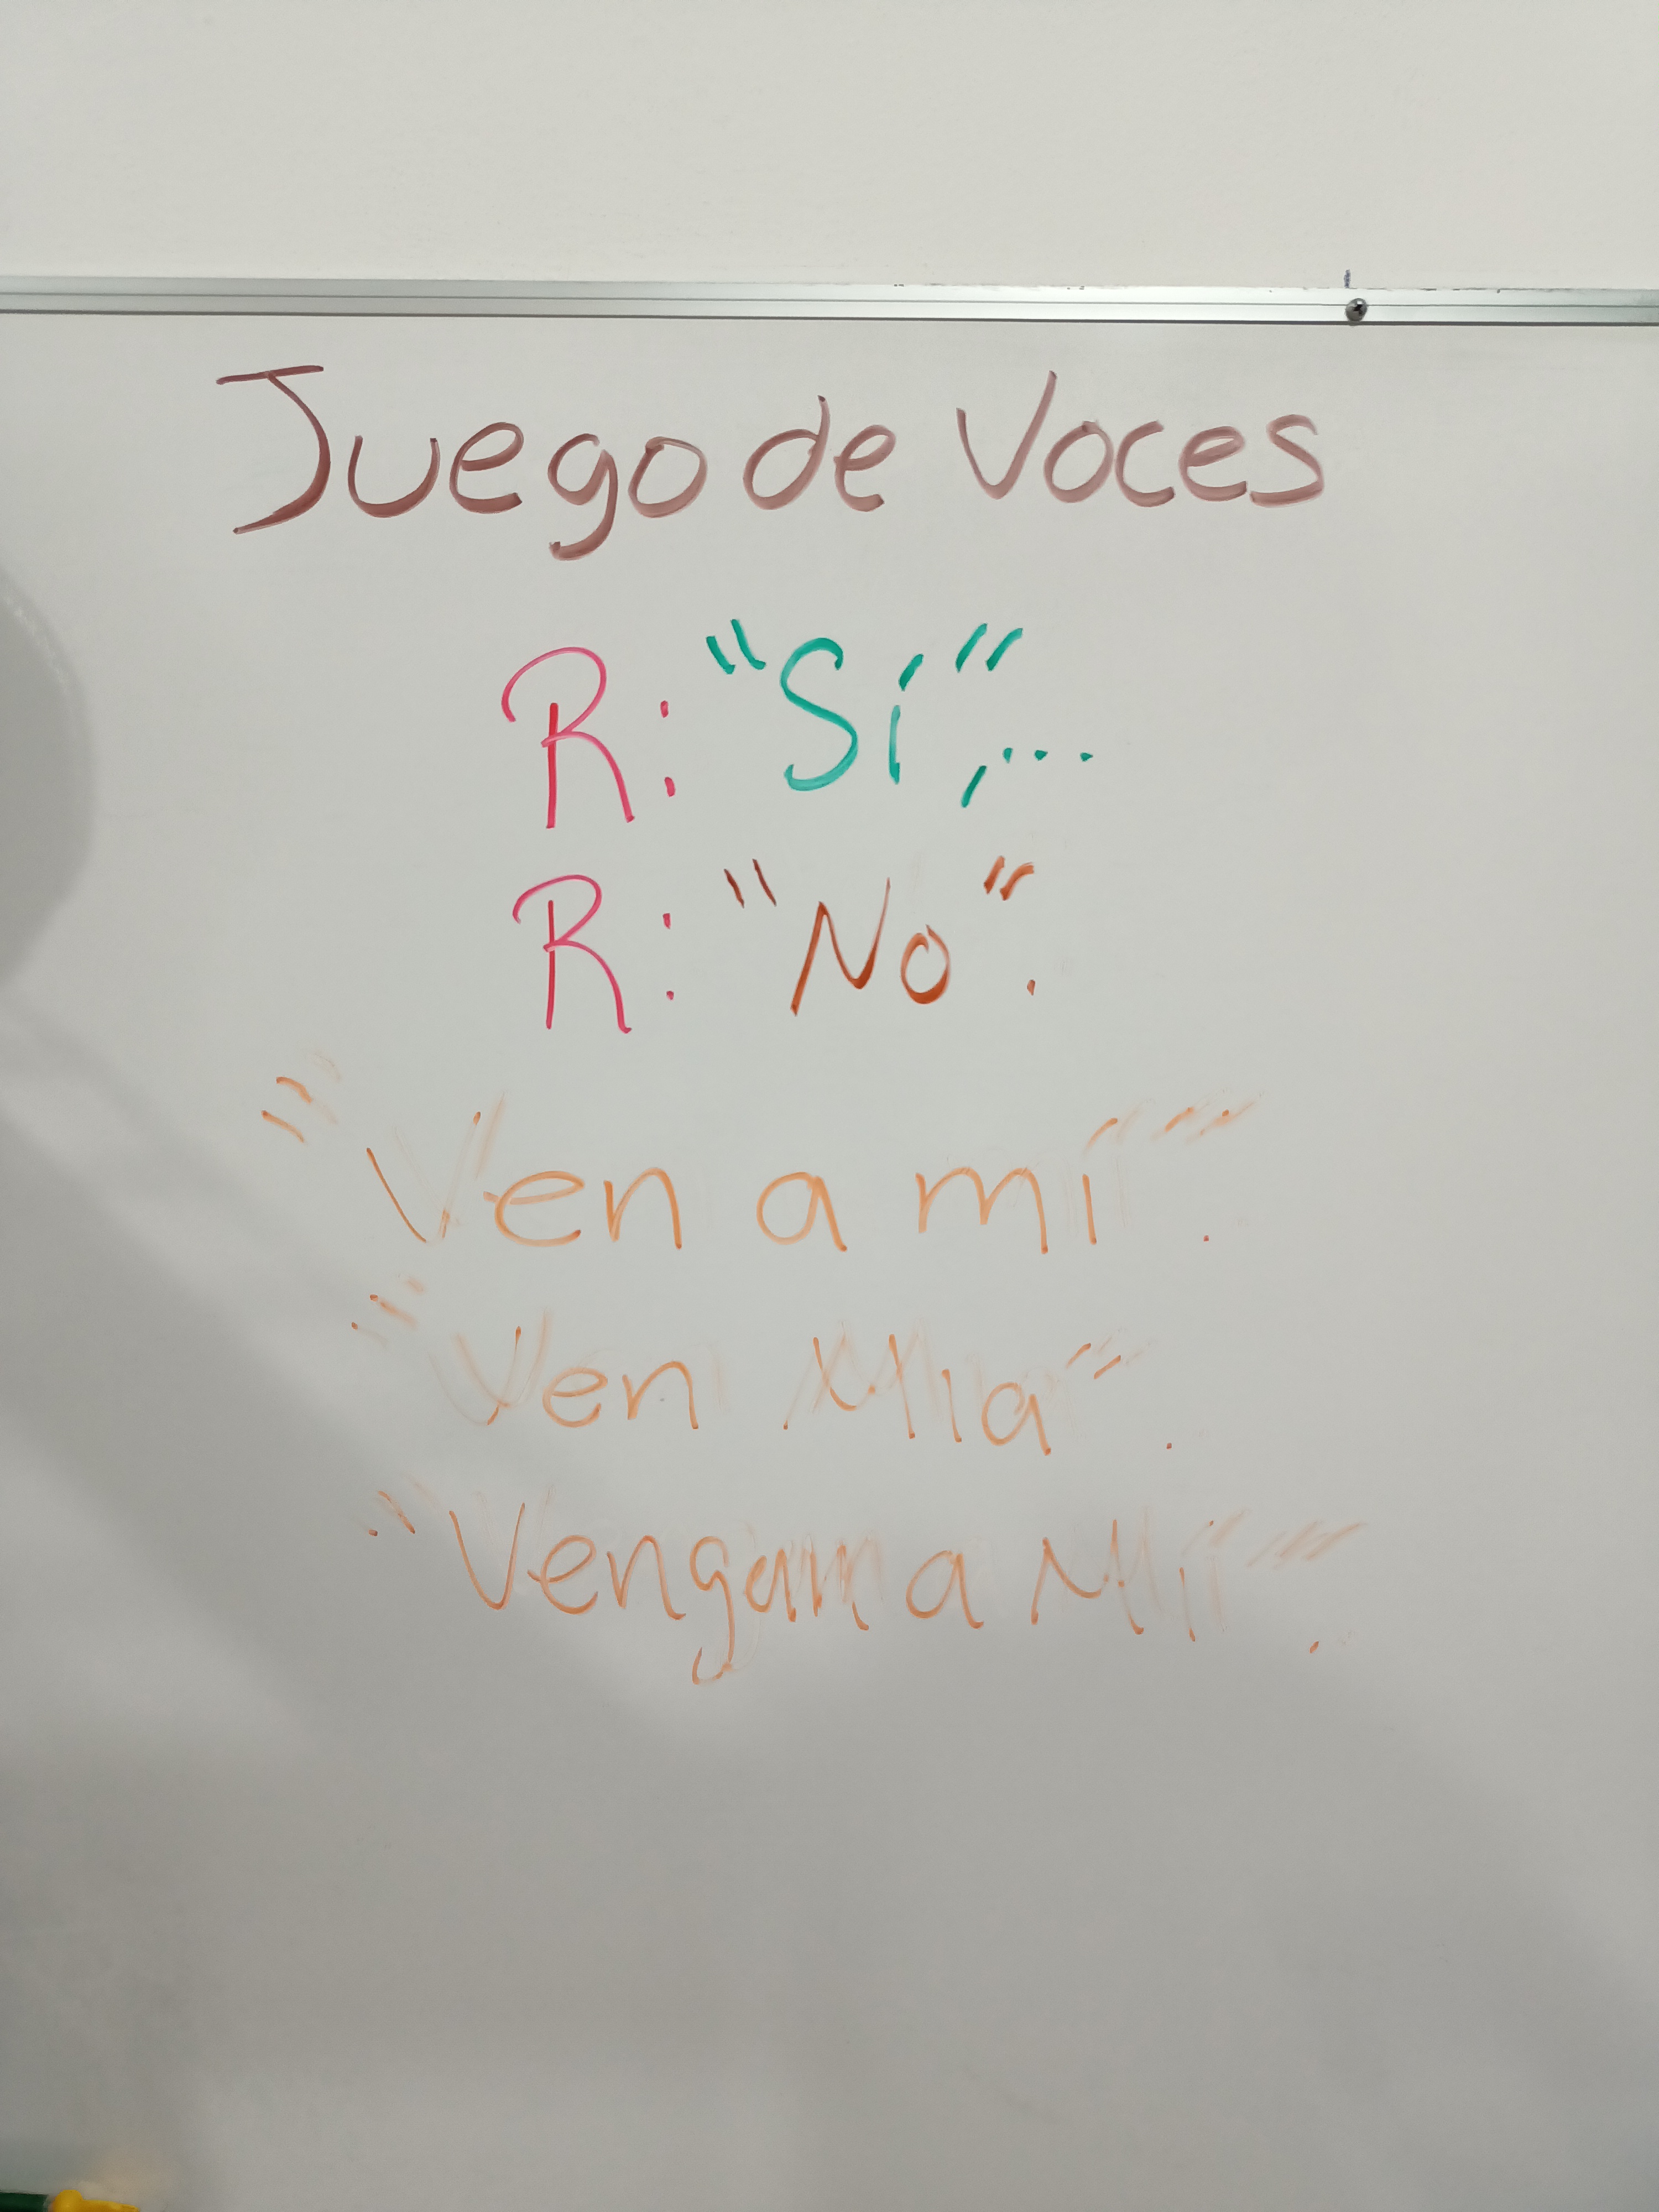 Juego de Voces
R: "Sí",...
R: "No".
"Ven a mí".
"Ven Mia".
"Vengan a Mí".